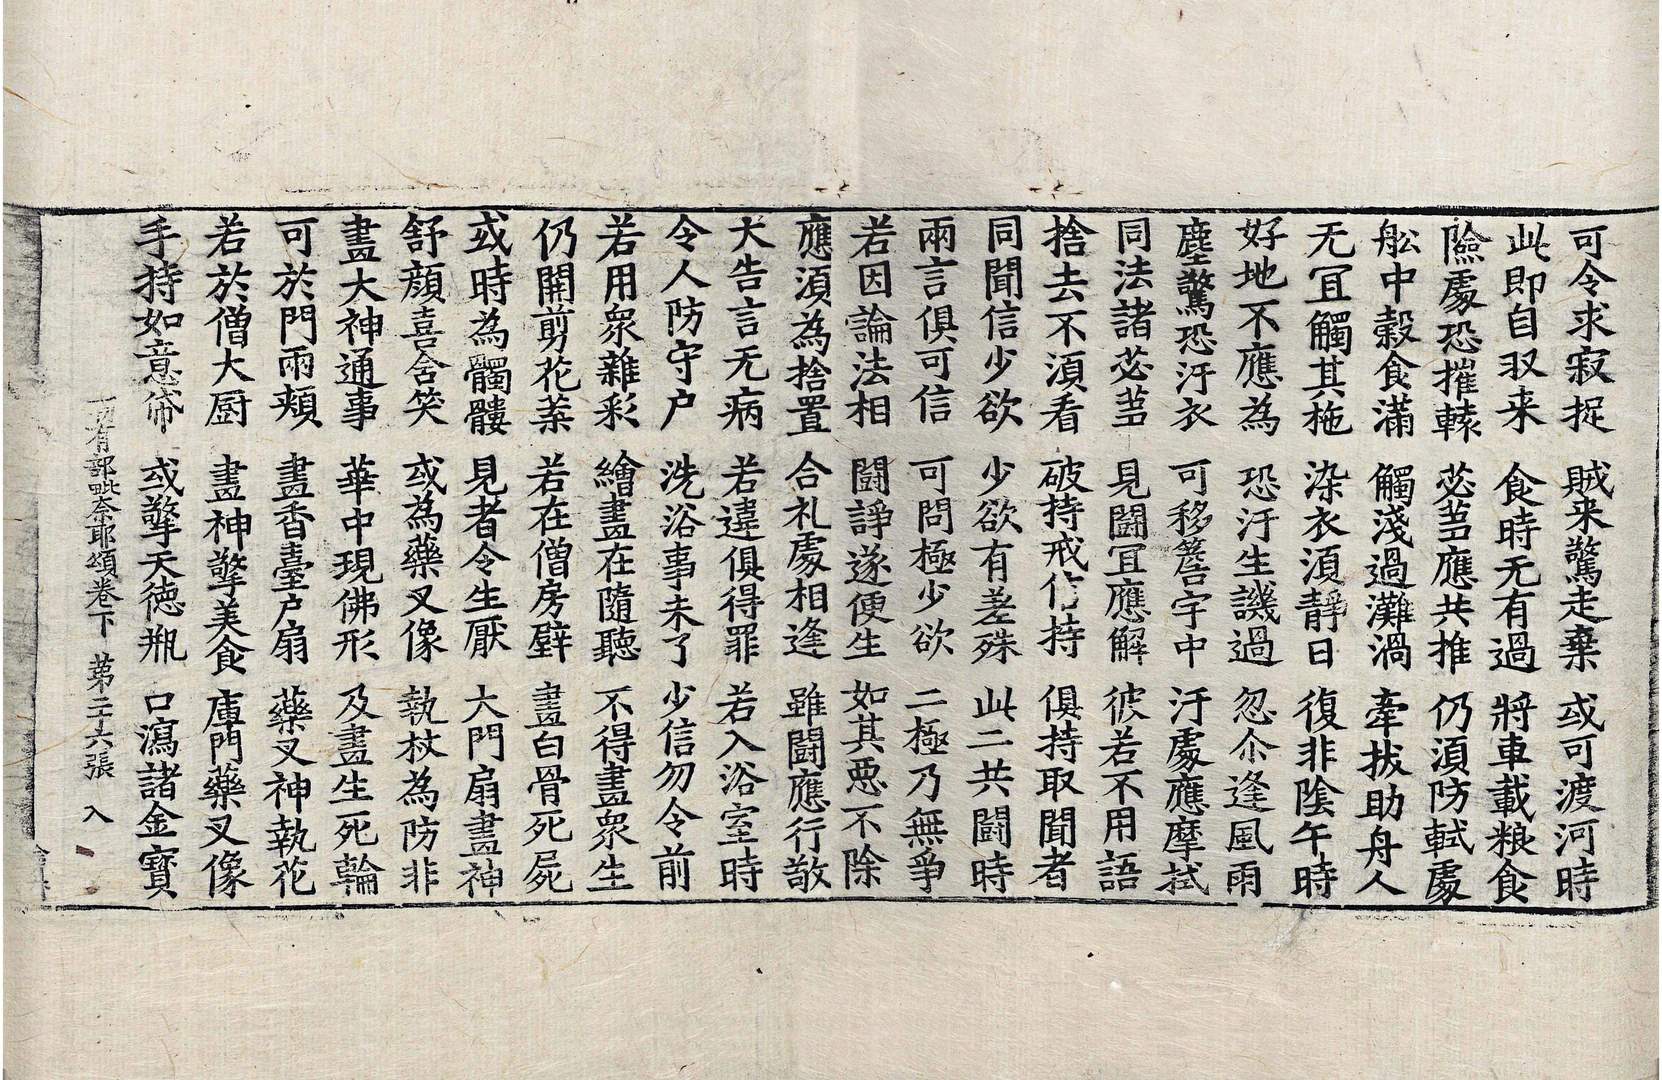 可令求寂捉 賊来驚走棄 或可渡河時
此即自収来 食時无有過 將車載粮食
險處恐摧轅 苾蒭應共推 仍湏防軾處
舩中穀食滿 觸淺過灘渦 牽拔助舟人
无冝觸其拖 染衣湏靜日 復非陰午時
好地不應為 恐汙生譏過 忽尒逢風雨
塵驚恐汙衣 可移簷宇中 汙處應摩拭
同法諸苾蒭 見鬪冝應解 彼若不用語
捨去不湏看 破持戒信持 俱持取聞者
同聞信少欲 少欲有差殊 此二共鬪時
兩言俱可信 可問極少欲 二極乃無爭
若因論法相 鬪諍遂便生 如其恶不除
應湏為捨置 合礼處相逢 雖鬪應行敬
大告言无病 若違俱得罪 若入浴室時
令人防守户 洗浴事未了 少信勿令前
若用衆雜彩 繪畫在隨聽 不得畫衆生
仍開剪花葉 若在僧房壁 畫白骨死屍
或時為髑髏 見者令生厭 大門扇畫神
舒顔喜含笑 或為藥叉像 執杖為防非
畫大神通事 華中現佛形 及畫生死輪
可於門兩頰 畫香臺户扇 藥叉神執花
若於僧大厨 畫神擎美食 庫門藥叉像
手持如意帒 或擎天徳瓶 口瀉諸金寳
一切有部毗奈耶頌卷下 第二十六張 入